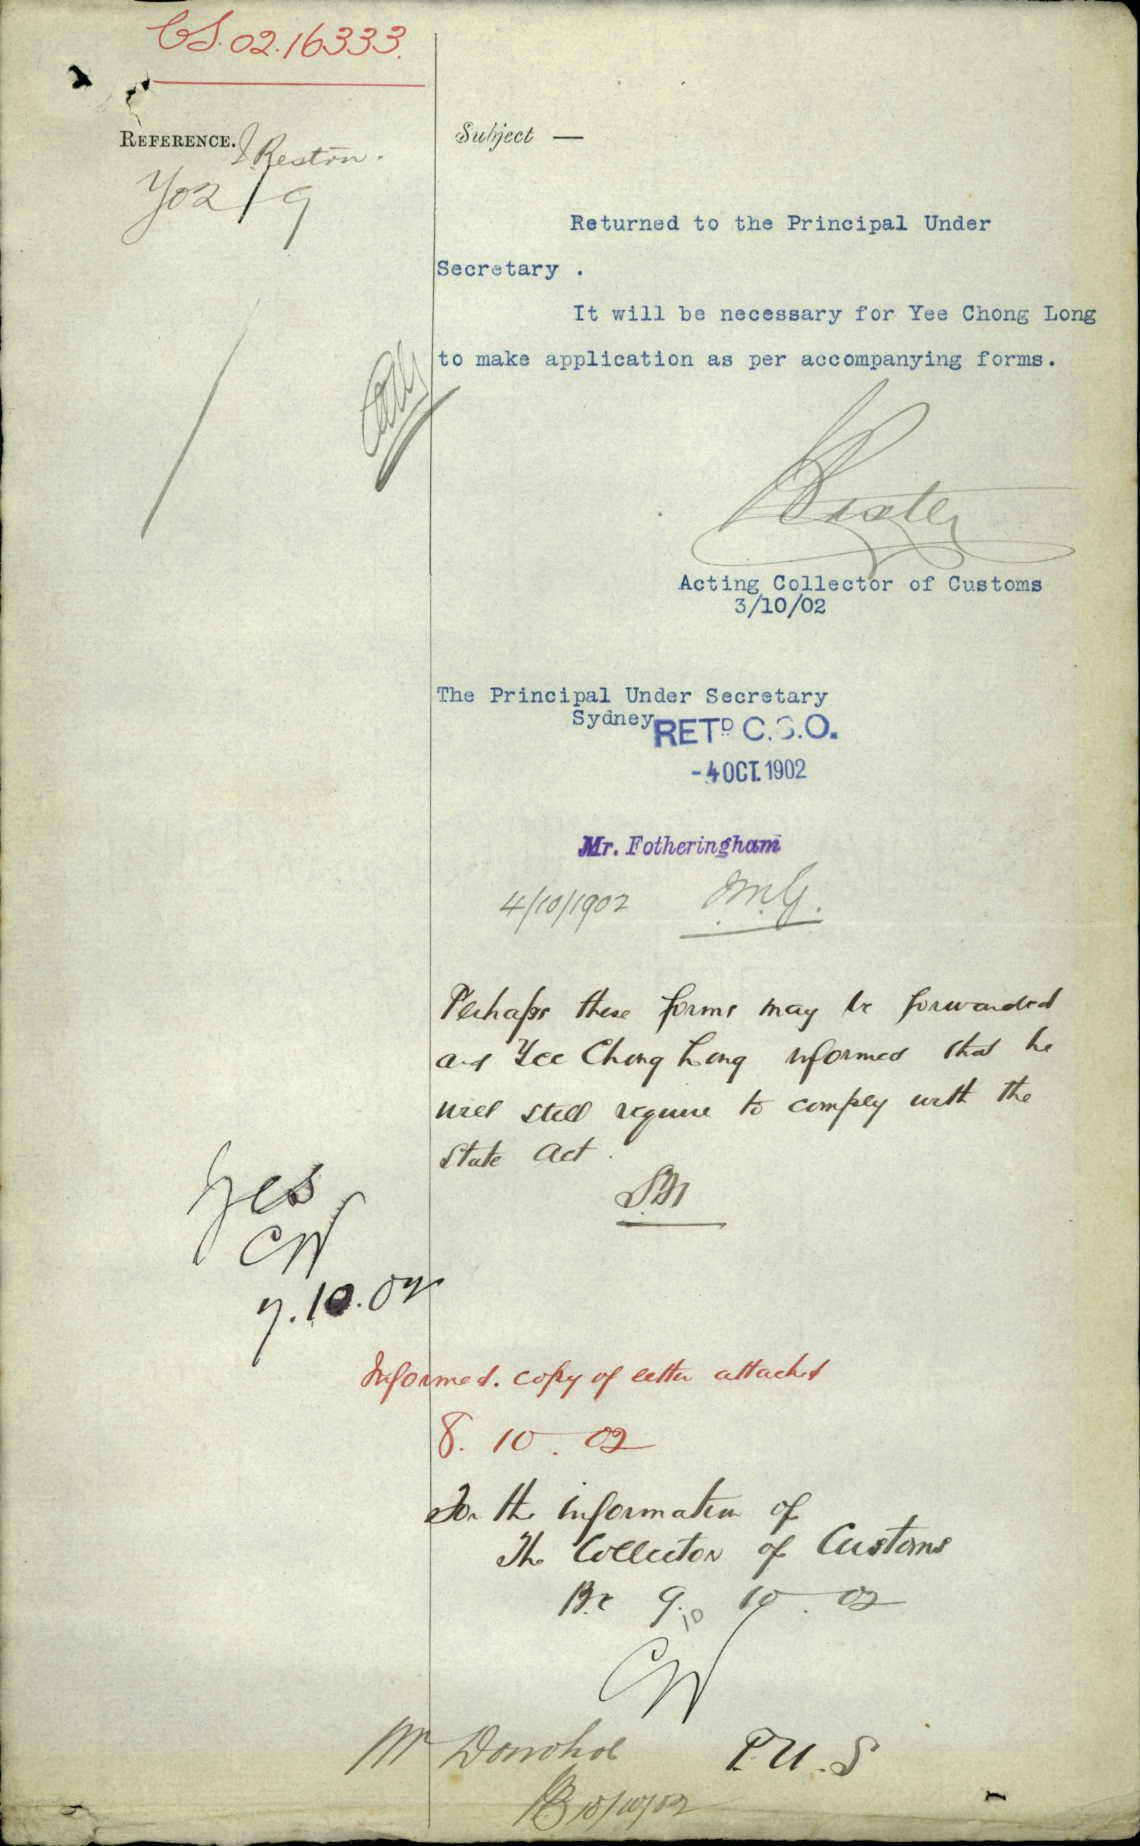 CS.02.16333.
REFERENCE.
Subject —
Returned to the Principal Under
Secretary .
It will be necessary for Yee Chong Long
to make application as per accompanying forms.
Baxter
Acting Collector of Customs
3/10/02
The Principal Under Secretary
Sydney
RETD C.S.O.
-4 OCT. 1902
Mr. Fotheringham
4/10/1902
Perhaps these forms may be forwarded
and Yee Chong Long informed that he
will still require to comply with the
State Act.
Yes
CW
7.10.02
Informed. copy of letter attached
8. 10. 02
For the information of
The Collector of Customs
10. 02
CW
P.U.S
Mr Donohoe
10/10/02